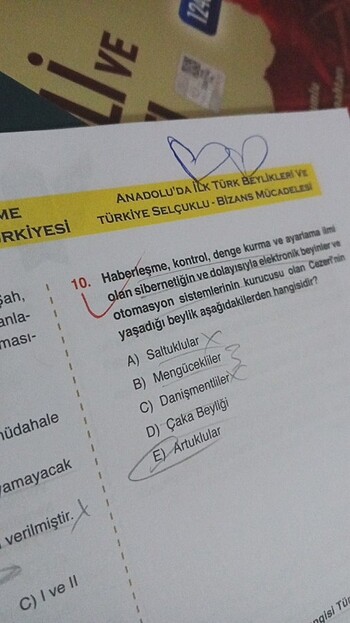 Lİ VE
124
ANADOLU'DA İLK TÜRK BEYLİKLERİ VE
TÜRKİYE SELÇUKLU - BİZANS MÜCADELESİ
ME
RKİYESİ
10. Haberleşme, kontrol, denge kurma ve ayarlama ilmi
olan sibernetiğin ve dolayısıyla elektronik beyinler ve
otomasyon sistemlerinin kurucusu olan Cezeri'nin
yaşadığı beylik aşağıdakilerden hangisidir?
A) Saltuklular
B) Mengücekliler
C) Danişmentliler
D) Çaka Beyliği
E) Artuklular
şah,
anla-
ması-
müdahale
amayacak
verilmiştir.
C) I ve II